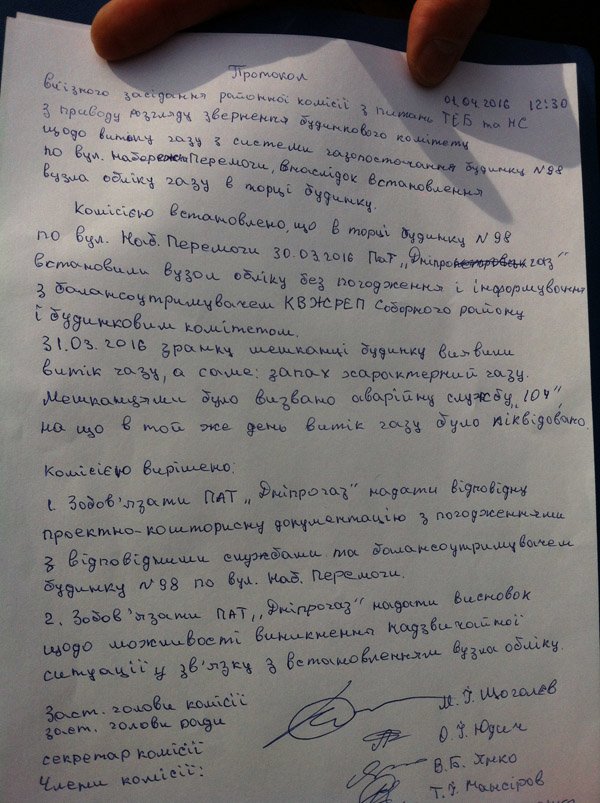 Протокол
виїзного засідання районної комісії з питань ТЕБ та НС 01.04.2016 12:30
з приводу розгляду звернення будинкового комітету
щодо витоку газу з системи газопостачання будинку N98
по вул. Набережн Перемоги, внаслідок встановлення
вузла обліку газу в торці будинку.
Комісією встановлено, що в торці будинку N98
по вул. Наб. Перемоги 30.03.2016 ПАТ „Дніпрогаз"
встановили вузол обліку без погодження і інформування
з балансоутримувачем КВЖРЕП Соборного району
і будинковим комітетом.
31.03.2016 зранку мешканці будинку виявили
витік газу, а саме: запах характерний газу.
Мешканцями було визвано аварійну службу „104",
на що в той же день витік газу було ліквідовано.
Комісією вирішено:
1. Зобов'язати ПАТ „Дніпрогаз" надати відповідну
проектно-кошторисну документацію з погодженнями
з відповідними службами та балансоутримувачем
будинку N98 по вул. Наб. Перемоги.
2. Зобов'язати ПАТ „Дніпрогаз" надати висновок
щодо можливості виникнення надзвичайної
ситуації у зв'язку з встановленням вузла обліку.
Заст. голови комісії М. Г. Щоголєв
заст. голови ради О. Г. Юдич
секретар комісії В. Б. Янко
Члени комісії: Т. Г. Мансіров